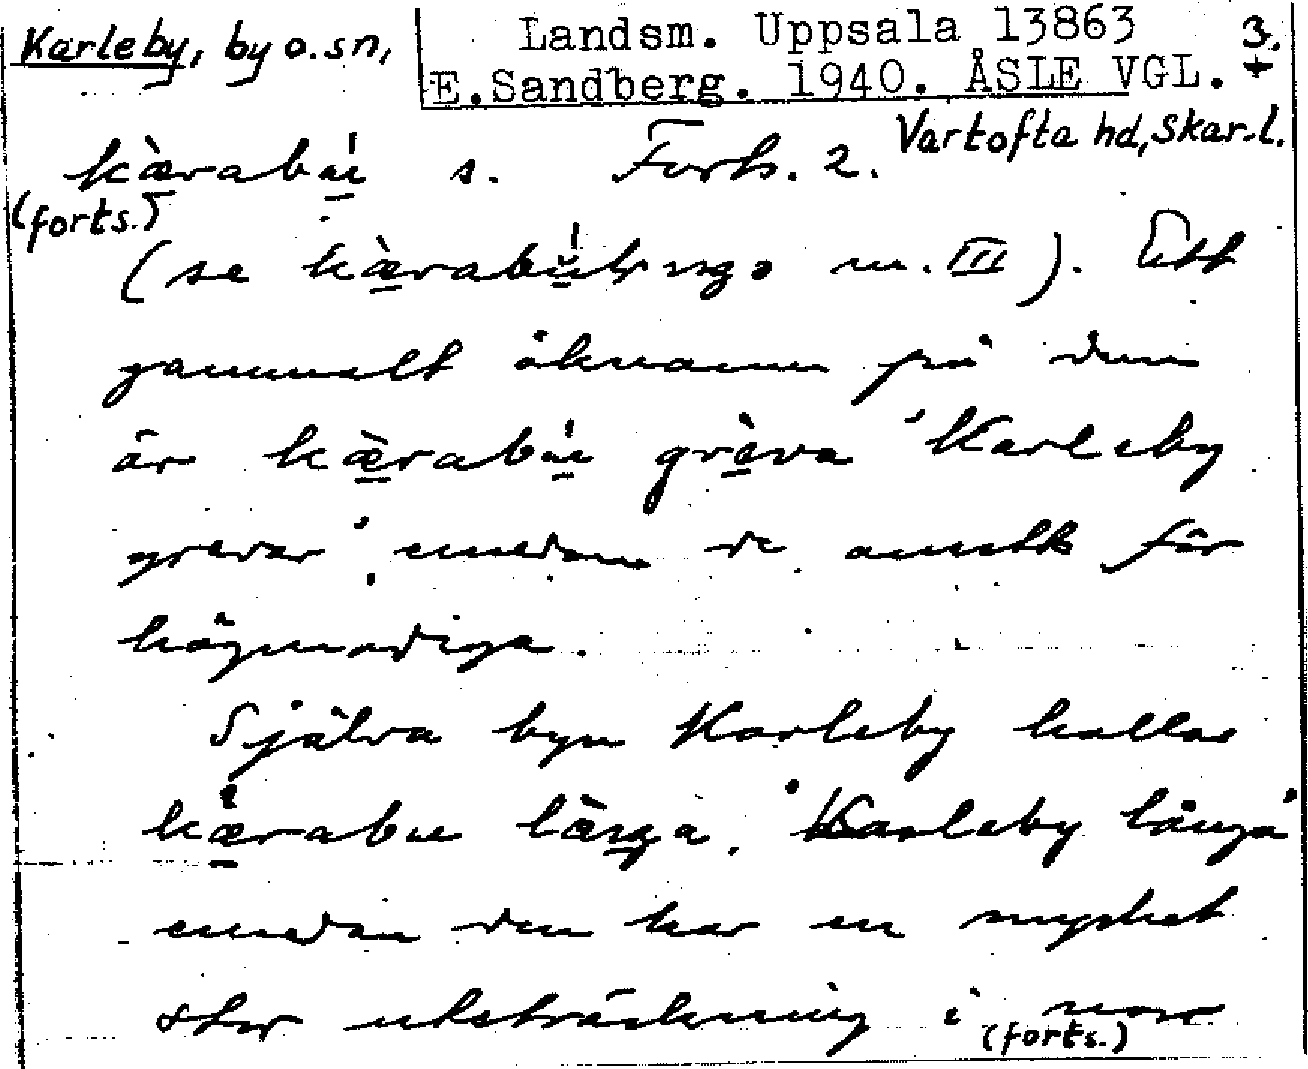 Karleby, by o. sn,
Landsm. Uppsala 13863 3.
E.Sandberg. 1940. ÅSLE VGL.
Vartofta hd, Skar. l.
kæ̀rabú s. Forts. 2.
(forts.)
(se kæ̀rabú m. III). Ett
gammalt öknamn på dem
är kæ̀rabú grèva "Karleby
grevar", emedan de ansetts för
högmodiga.
Själva byn Karleby kallas
kæ̀rabu læ̀ŋa. "Karleby långa"
emedan den har en mycket
stor utsträckning i norr
(forts.)